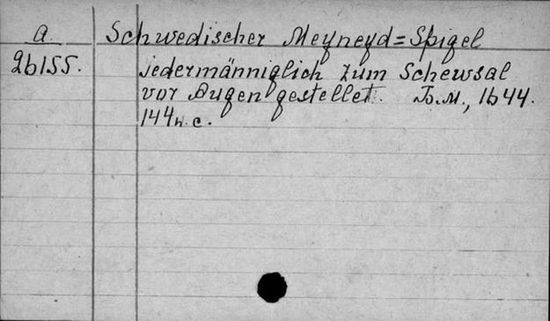 a. Schwedischer Meyneyd=Spigel
26155. jedermänniglich zum Schewsal
vor Augen gestellet. 1644.
144